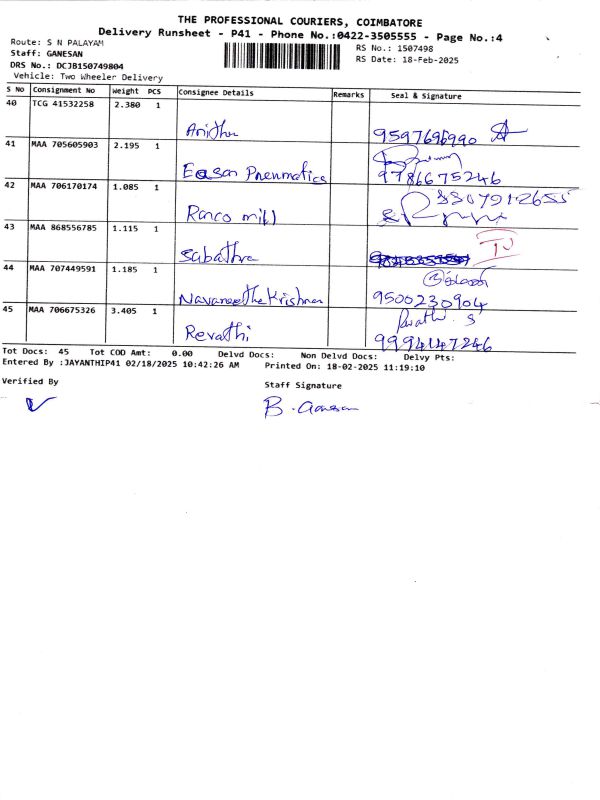 THE PROFESSIONAL COURIERS, COIMBATORE
Delivery Runsheet - P41 - Phone No.:0422-3505555 - Page No.:4
Route: S N PALAYAM
Staff: GANESAN
DRS No.: DCJB150749804
Vehicle: Two Wheeler Delivery
RS No.: 1507498
RS Date: 18-Feb-2025
S No Consignment No Weight PCS Consignee Details Remarks Seal & Signature
40 TCG 41532258 2.380 1
Anitha 9597696990
41 MAA 705605903 2.195 1
Eason Pneumatics 9786675246
42 MAA 706170174 1.085 1
Ranco mill 8807912655
43 MAA 868556785 1.115 1
Sabathra
44 MAA 707449591 1.185 1
Navaneetha Krishnan 9500230904
45 MAA 706675326 3.405 1
Revathi 9994147246
Tot Docs: 45 Tot COD Amt: 0.00 Delvd Docs: Non Delvd Docs: Delvy Pts:
Entered By :JAYANTHIP41 02/18/2025 10:42:26 AM Printed On: 18-02-2025 11:19:10
Verified By Staff Signature
B. Ganesan